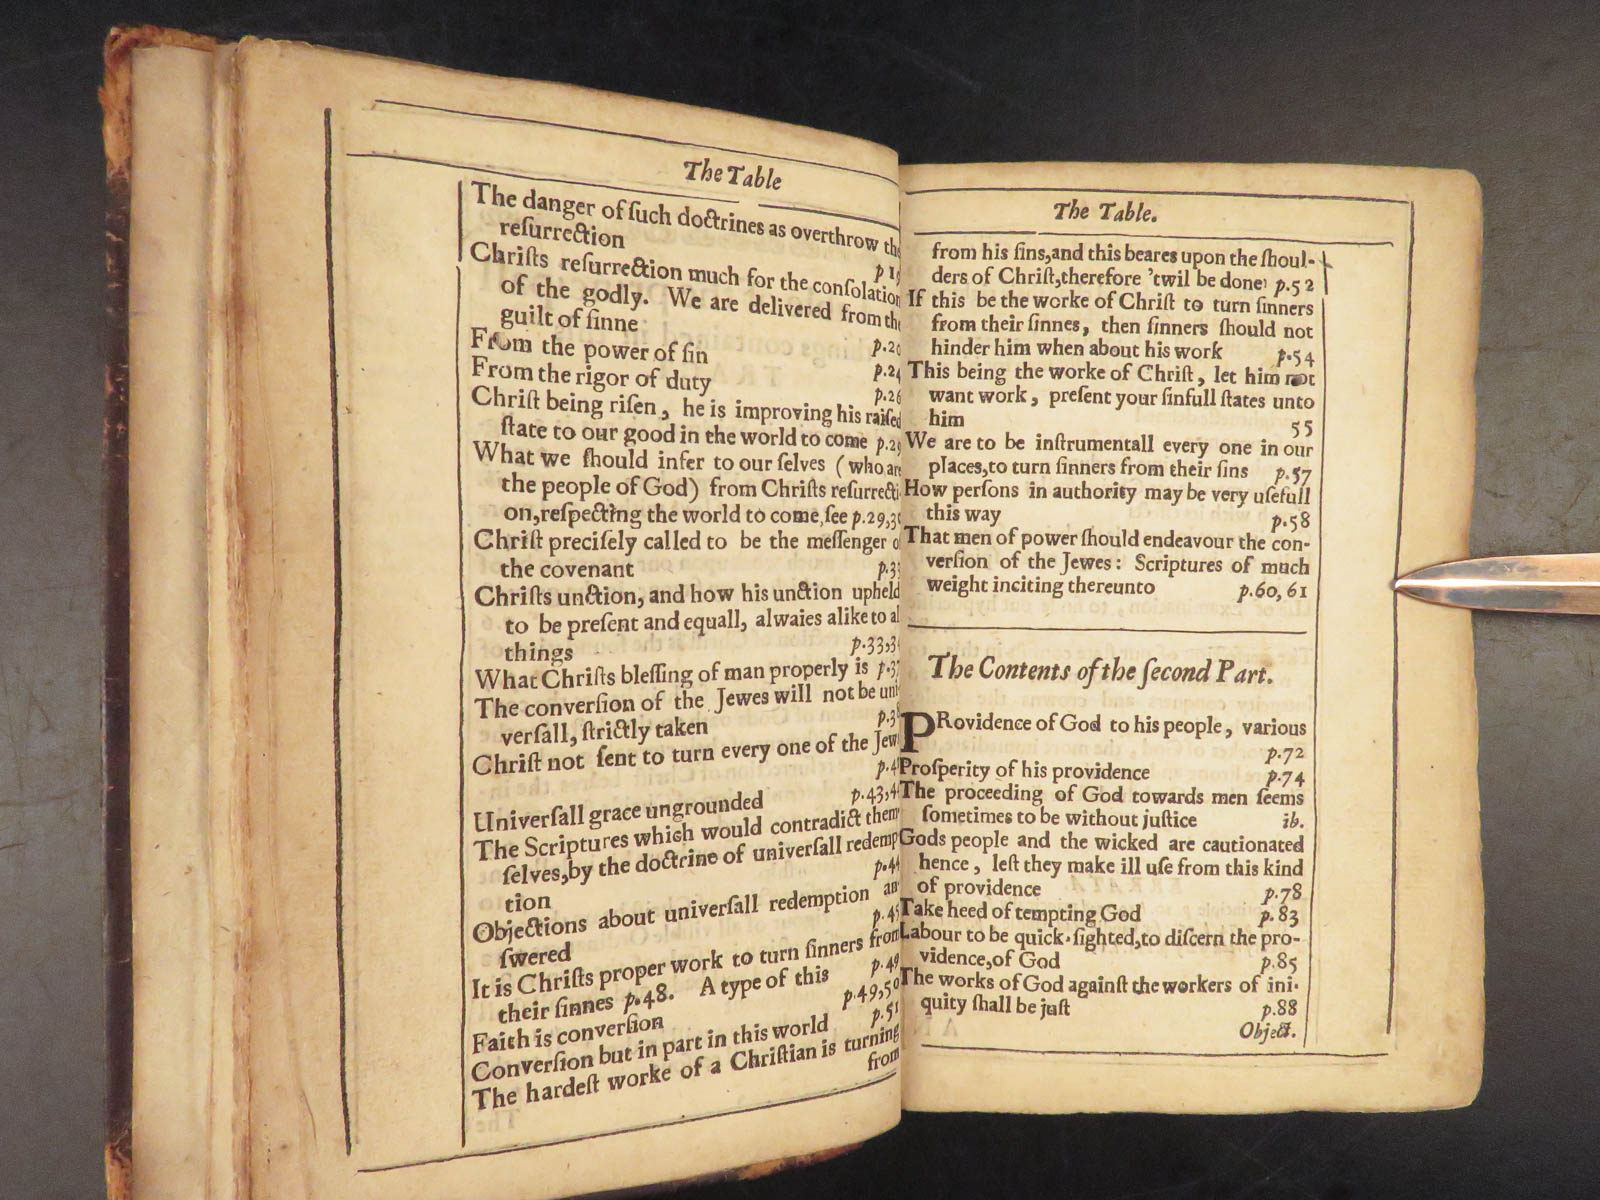 The Table
The danger of ſuch doctrines as overthrow the
reſurrection
Chriſts reſurrection much for the conſolation
of the godly. We are delivered from the
guilt of ſinne
From the power of ſin
From the rigor of duty p.24
Chriſt being riſen, he is improving his raiſed
ſtate to our good in the world to come
What we ſhould infer to our ſelves (who are
the people of God) from Chriſts reſurrecti-
on,reſpecting the world to come,ſee p.29,
Chriſt preciſely called to be the meſſenger
the covenant
Chriſts unction, and how his unction upheld
to be preſent and equall, alwaies alike to
things p.33,
What Chriſts bleſſing of man properly is
The converſion of the Jewes will not be
verſall, ſtrictly taken
Chriſt not ſent to turn every one of the
Univerſall grace ungrounded p.43,
The Scriptures which would contradict them
ſelves,by the doctrine of univerſall redemp
tion
Objections about univerſall redemption an
ſwered p.45
It is Chriſts proper work to turn ſinners from
their ſinnes p.48. A type of this p.49
Faith is converſion p.49,50
Converſion but in part in this world p.51
The hardeſt worke of a Chriſtian is turning
from
The Table.
from his ſins,and this beares upon the ſhoul-
ders of Chriſt,therefore 'twil be done p.52
If this be the worke of Chriſt to turn ſinners
from their ſinnes, then ſinners ſhould not
hinder him when about his work p.54
This being the worke of Chriſt, let him not
want work, preſent your ſinfull ſtates unto
him 55
We are to be inſtrumentall every one in our
places,to turn ſinners from their ſins p.57
How perſons in authority may be very uſefull
this way p.58
That men of power ſhould endeavour the con-
verſion of the Jewes: Scriptures of much
weight inciting thereunto p.60, 61
The Contents of the ſecond Part.
PRovidence of God to his people, various
p.72
Proſperity of his providence p.74
The proceeding of God towards men ſeems
ſometimes to be without juſtice ib.
Gods people and the wicked are cautionated
hence, leſt they make ill uſe from this kind
of providence p.78
Take heed of tempting God p.83
Labour to be quick-ſighted,to diſcern the pro-
vidence,of God p.85
The works of God againſt the workers of ini-
quity ſhall be juſt p.88
Object.